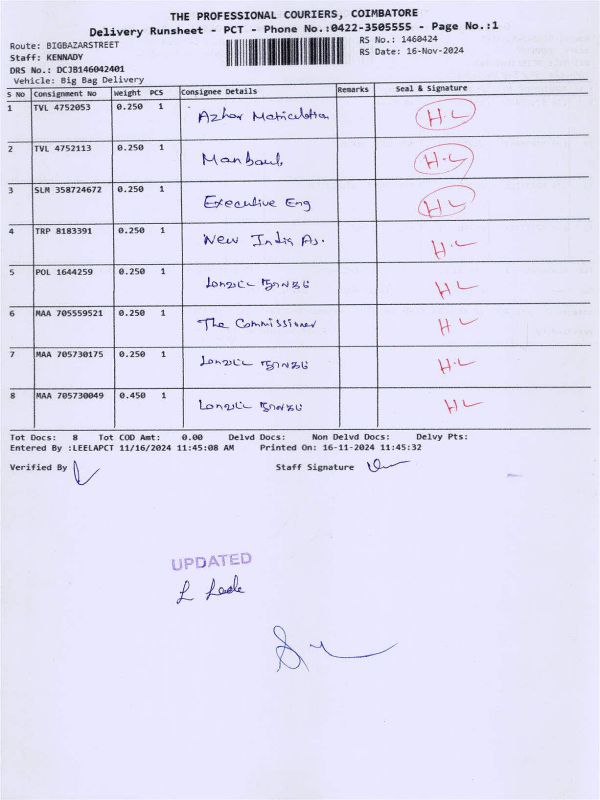 THE PROFESSIONAL COURIERS, COIMBATORE
Delivery Runsheet - PCT - Phone No.:0422-3505555 - Page No.:1
Route: BIGBAZARSTREET RS No.: 1460424
Staff: KENNADY RS Date: 16-Nov-2024
DRS No.: DCJB146042401
Vehicle: Big Bag Delivery
S No Consignment No Weight PCS Consignee Details Remarks Seal & Signature
1 TVL 4752053 0.250 1 Azhar Matriculation H.L
2 TVL 4752113 0.250 1 H.L
3 SLM 358724672 0.250 1 Executive Eng H L
4 TRP 8183391 0.250 1 New India As. H.L
5 POL 1644259 0.250 1 H L
6 MAA 705559521 0.250 1 The Commissioner H L
7 MAA 705730175 0.250 1 H.L
8 MAA 705730049 0.450 1 H L
Tot Docs: 8 Tot COD Amt: 0.00 Delvd Docs: Non Delvd Docs: Delvy Pts:
Entered By :LEELAPCT 11/16/2024 11:45:08 AM Printed On: 16-11-2024 11:45:32
Verified By Staff Signature
UPDATED